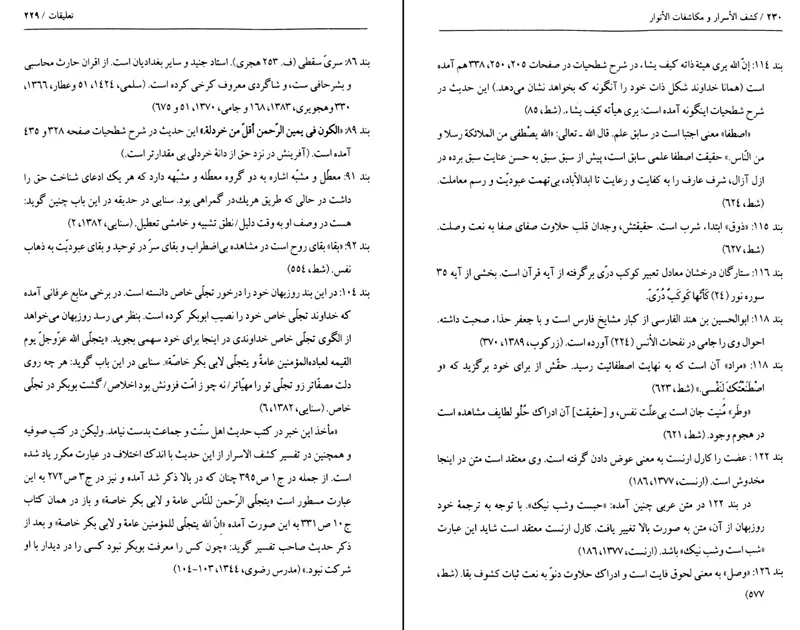 ۲۳۰ / کشف الأسرار و مکاشفات الأنوار
بند ۱۱۴: إنّ الله یری هیئة ذاته کیف یشاء در شرح شطحیات در صفحات ۲۰۵، ۲۵۰، ۳۳۸ هم آمده
است (همانا خداوند شکل ذات خود را آنگونه که بخواهد نشان می‌دهد.) این حدیث در
شرح شطحیات اینگونه آمده است: یری هیأته کیف یشاء. (شط، ۸۵)
«اصطفا» معنی اجتبا است در سابق علم. قال الله ـ تعالی: «الله یصْطفی من الملائکة رسلا و
من النّاس.» حقیقت اصطفا علمی سابق است، پیش از سبق سبق به حسن عنایت سبق برده در
ازل آزال، شرف عارف را به کفایت و رعایت تا ابدالآباد، بی‌تهمت عبودیّت و رسم معاملت.
(شط، ۶۲۴)
بند ۱۱۵: «ذوق» ابتداء شرب است. حقیقتش، وجدان قلب حلاوت صفای صفا به نعت وصلت.
(شط، ۶۲۷)
بند ۱۱۶: ستارگان درخشان معادل تعبیر کوکب درّی برگرفته از آیه قرآن است. بخشی از آیه ۳۵
سوره نور (۲۴) کَأنَّها کَوکَبٌ دُرِّیٌ.
بند ۱۱۸: ابوالحسین بن هند الفارسی از کبار مشایخ فارس است و با جعفر حذاء صحبت داشته.
احوال وی را جامی در نفحات الأنس (۲۲۴) آورده است. (زرکوب، ۱۳۸۹، ۳۷۰)
بند ۱۱۸: «مراد» آن است که به نهایت اصطفائیت رسید. حقّش از برای خود برگزید که «و
اصْطَنَعْتُکَ لِنَفْسی.» (شط، ۶۲۳)
«وطَر» مُنیت جان است بی‌علّت نفس، و [حقیقت] آن ادراک حُلُو لطایف مشاهده است
در هجوم وجود. (شط، ۶۲۱)
بند ۱۲۲: عضت را کارل ارنست به معنی عوض دادن گرفته است. وی معتقد است متن در اینجا
مخدوش است. (ارنست، ۱۳۷۷، ۱۸۶)
در بند ۱۲۲ در متن عربی چنین آمده: «حبست وشب نیک». با توجه به ترجمهٔ خود
روزبهان از آن، متن به صورت بالا تغییر یافت. کارل ارنست معتقد است شاید این عبارت
«شب است وشب نیک» باشد. (ارنست، ۱۳۷۷، ۱۸۶)
بند ۱۲۶: «وصل» به معنی لحوق فایت است و ادراک حلاوت دنوّ به نعت ثبات کشوف بقا. (شط،
۵۷۷)
تعلیقات / ۲۲۹
بند ۸۶: سریّ سقطی (ف. ۲۵۳ هجری). استاد جنید و سایر بغدادیان است. از اقران حارث محاسبی
و بشرحافی ست، و شاگردی معروف کرخی کرده است. (سلمی، ۱۴۲۴، ۵۱ وعطار، ۱۳۶۶،
۳۳۰ وهجویری، ۱۳۸۳، ۱۶۸ و جامی، ۱۳۷۰، ۵۱ و ۶۷۵)
بند ۸۹: «الکون فی یمین الرّحمن أقلّ من خردلة.» این حدیث در شرح شطحیات صفحه ۳۲۸ و ۴۳۵
آمده است. (آفرینش در نزد حق از دانهٔ خردلی بی مقدارتر است.)
بند ۹۱: معطّل و مشبّه اشاره به دو گروه معطّله و مشبّهه دارد که هر یک ادعای شناخت حق را
داشت در حالی که طریق هریک‌در گمراهی بود. سنایی در حدیقه در این باب چنین گوید:
هست در وصف او به وقت دلیل/ نطق تشبیه و خامشی تعطیل. (سنایی، ۱۳۸۲، ۲)
بند ۹۲: «بقا» بقای روح است در مشاهده بی‌اضطراب و بقای سرّ در توحید و بقای عبودیّت به ذهاب
نفس. (شط، ۵۵۴)
بند ۱۰۴: در این بند روزبهان خود را درخور تجلّی خاص دانسته است. در برخی منابع عرفانی آمده
که خداوند تجلّی خاص خود را نصیب ابوبکر کرده است. بنظر می رسد روزبهان می‌خواهد
از الگوی تجلّی خاص خداوندی در اینجا برای خود سهمی بجوید. «یتجلّی الله عزّوجلّ یوم
القیمه لعباده‌المؤمنین عامةً و یتجلّی لابی بکر خاصّة». سنایی در این باب گوید: هر چه روی
دلت مصفّاتر زو تجلّی تو را مهیّاتر/ نه چو ز امّت فزونش بود اخلاص/ گشت بوبکر در تجلّی
خاص. (سنایی، ۱۳۸۲، ۶)
«مأخذ این خبر در کتب حدیث اهل سنّت و جماعت بدست نیامد. ولیکن در کتب صوفیه
و همچنین در تفسیر کشف الاسرار از این حدیث با اندک اختلاف در عبارت مکرر یاد شده
است. از جمله در ج۱ ص۳۹۵ چنان که در بالا ذکر شد آمده و نیز در ج۳ ص۲۷۲ به این
عبارت مسطور است «یتجلّی الرّحمن للنّاس عامة و لابی بکر خاصة» و باز در همان کتاب
ج۱۰ ص۳۳۱ به این صورت آمده «إنّ الله یتجلّی للمؤمنین عامة و لابی بکر خاصة» و بعد از
ذکر حدیث صاحب تفسیر گوید: «چون کس را معرفت بوبکر نبود کسی را در دیدار با او
شرکت نبود.» (مدرس رضوی، ۱۳۴۴، ۱۰۳-۱۰۴)